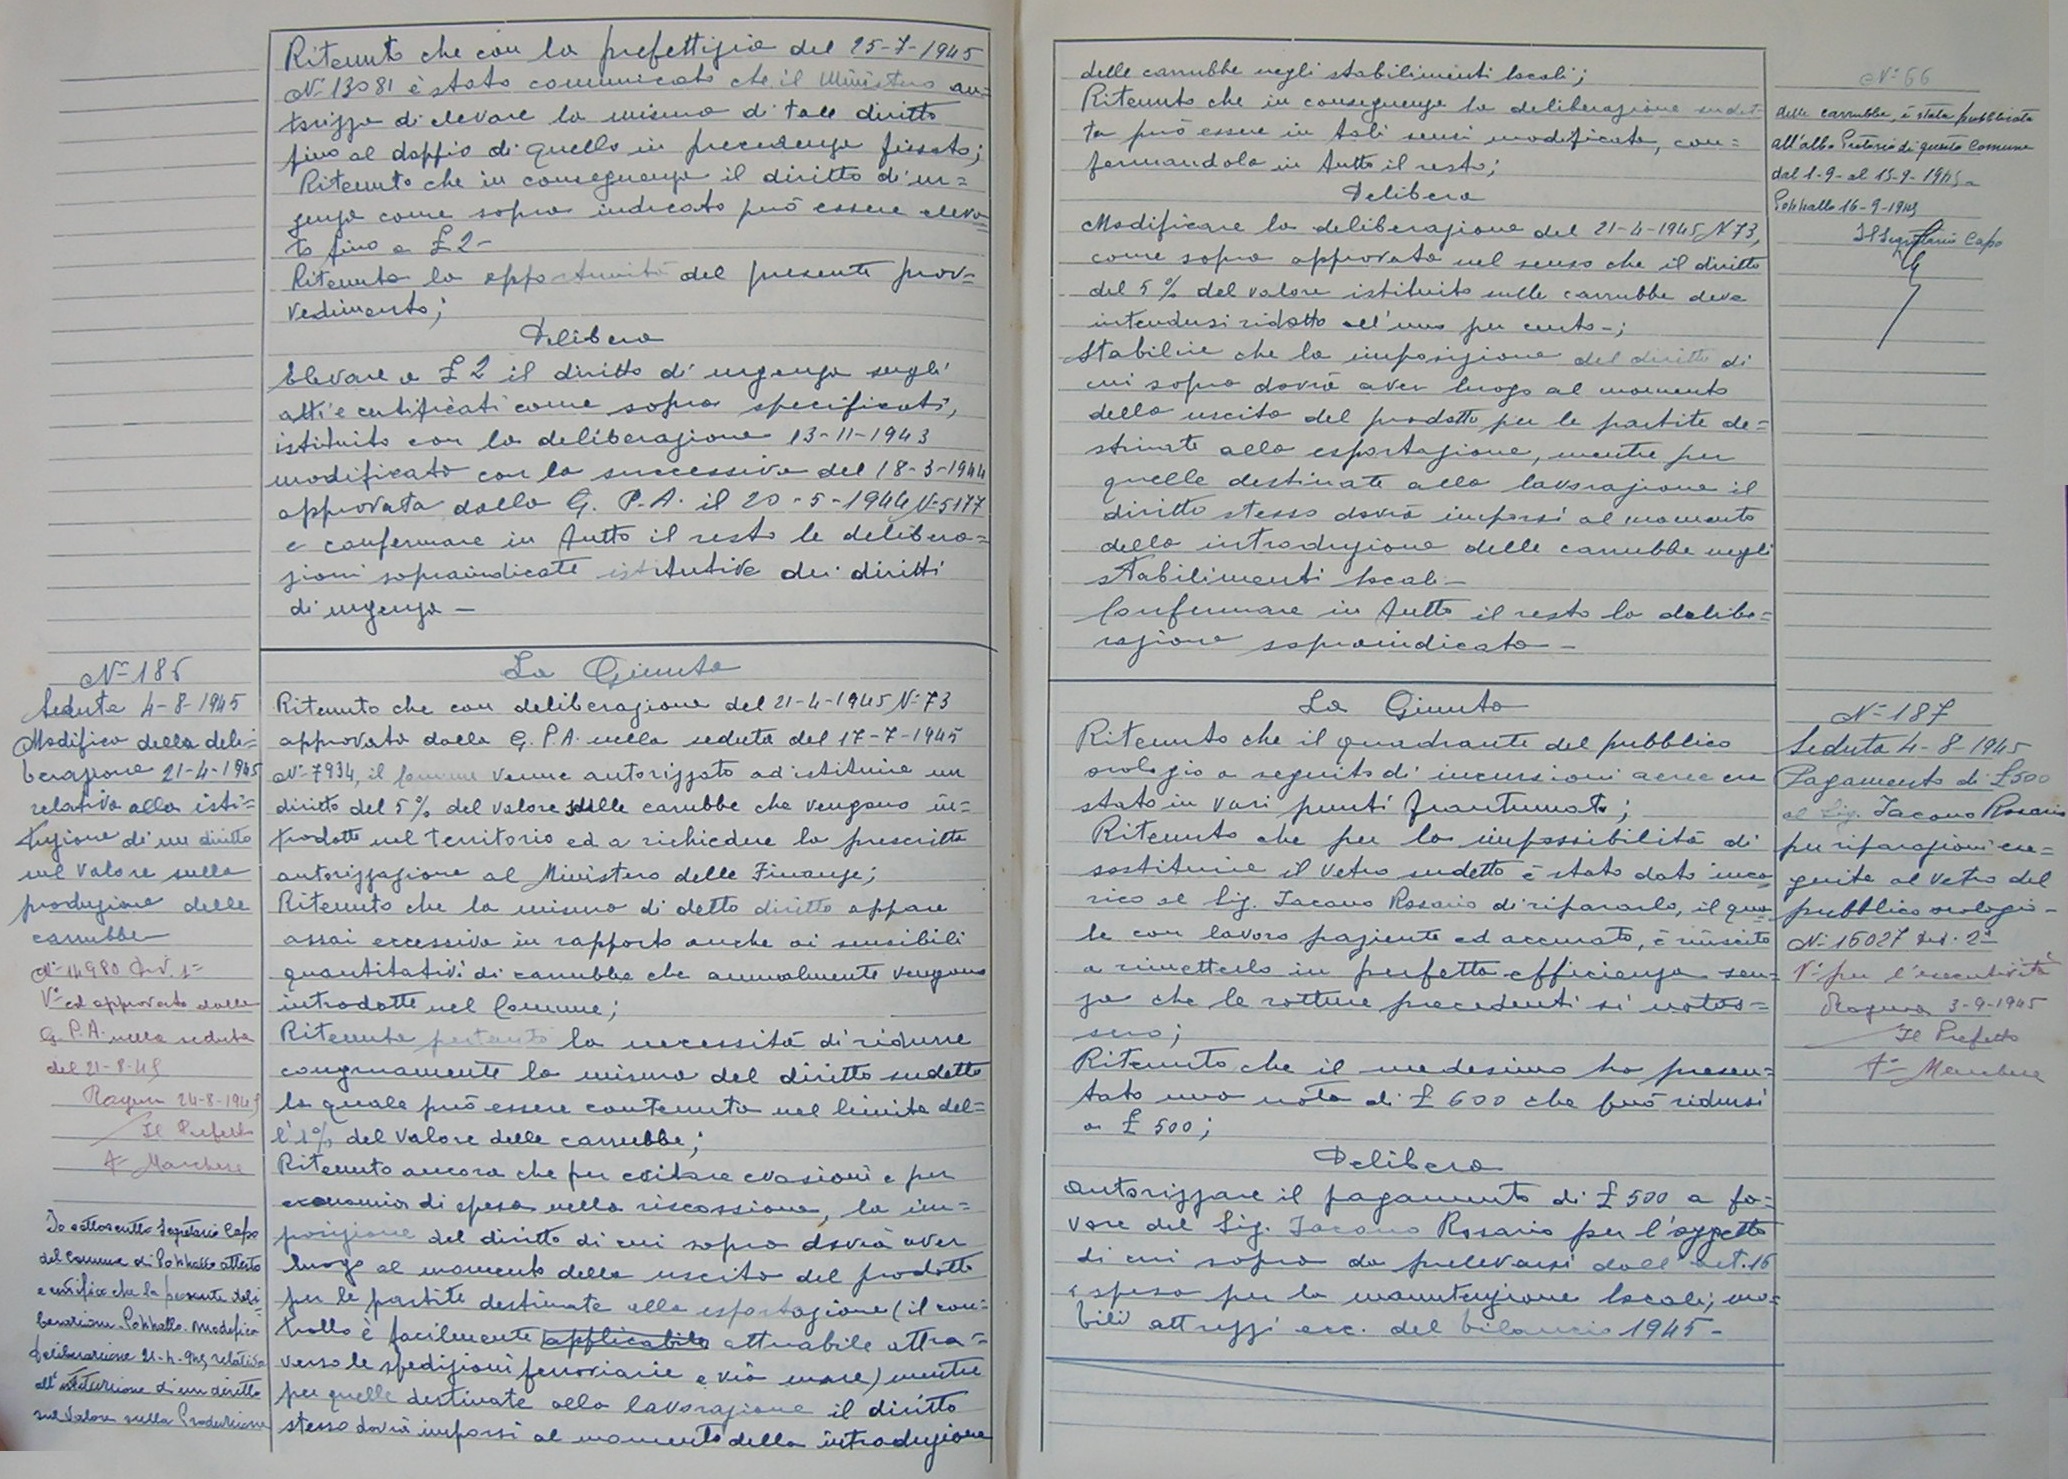 Ritenuto che con la prefettizia del 25-7-1945
N° 13081 è stato comunicato che il Ministero au=
torizza di elevare la misura di tale diritto
fino al doppio di quello in precedenza fissato;
Ritenuto che in conseguenza il diritto d'ur=
genza come sopra indicato può essere eleva
to fino a £ 2-
Ritenuta la opportunità del presente prov=
vedimento;
Delibera
Elevare a £ 2 il diritto di urgenza sugli
atti e certificati come sopra specificati,
istituito con la deliberazione 13-11-1943
modificata con la successiva del 18-3-1944
approvata dalla G. P. A. il 20-5-1944 N° 5177
e confermare in tutto il resto le delibera=
zioni sopraindicate istitutive dei diritti
di urgenza -
N° 186
Seduta 4-8-1945
Modifica della deli=
berazione 21-4-1945
relativa alla isti=
tuzione di un diritto
sul valore sulla
produzione delle
carrubbe
N° 14980 Div. 1ª
V° ed approvato dalla
G. P. A. nella seduta
del 21-8-45
Ragusa 24-8-1945
Il Prefetto
Io sottoscritto Segretario Capo
del Comune di Pozzallo attesto
e certifico che la presente deli=
berazione Pozzallo. Modifica
deliberazione 21-4-945, relativa
all'istituzione di un diritto
sul valore sulla Produzione
La Giunta
Ritenuto che con deliberazione del 21-4-1945 N° 73
approvata dalla G. P. A. nella seduta del 17-7-1945
N° 7934, il Comune venne autorizzato ad istituire un
diritto del 5% del valore sulle carubbe che vengono in=
trodotte nel territorio ed a richiedere la prescritta
autorizzazione al Ministero delle Finanze;
Ritenuto che la misura di detto diritto appare
assai eccessiva in rapporto anche ai sensibili
quantitativi di carrubbe che annualmente vengono
introdotte nel Comune;
Ritenuta pertanto la necessità di ridurre
congruamente la misura del diritto sudetto
la quale può essere contenuta nel limite del=
l'1% del valore delle carrubbe;
Ritenuto ancora che per evitare evasioni e per
economia di spesa nella riscossione, la im=
posizione del diritto di cui sopra dovrà aver
luogo al momento della uscita del prodotto
per le partite destinate alla esportazione (il con=
trollo è facilmente applicabile attuabile attra=
verso le spedizioni ferroviarie e via mare) mentre
per quelle destinate alla lavorazione il diritto
stesso dovrà imporsi al momento della introduzione
delle carrubbe negli stabilimenti locali;
Ritenuto che in conseguenza la deliberazione sudet=
ta può essere in tali sensi modificata, con=
fermandola in tutto il resto;
Delibera
Modificare la deliberazione del 21-4-1945 N° 73,
come sopra approvata nel senso che il diritto
del 5% del valore istituito sulle carrubbe deve
intendersi ridotto all'uno per cento-;
Stabilire che la imposizione del diritto di
cui sopra dovrà aver luogo al momento
della uscita del prodotto per le partite de=
stinate alla esportazione, mentre per
quelle destinate alla lavorazione il
diritto stesso dovrà imporsi al momento
della introduzione delle carrubbe negli
stabilimenti locali-
Confermare in tutto il resto la delibe=
razione sopraindicata-
N° 66
delle carrubbe, è stata pubblicata
all'albo Pretorio di questo Comune
dal 1-9- al 15-9-1945-
Pozzallo 16-9-1945
Il Segretario Capo
La Giunta
Ritenuto che il quadrante del pubblico
orologio a seguito di incursioni aeree era
stato in vari punti frantumato;
Ritenuto che per la impossibilità di
sostituire il vetro sudetto è stato dato inca
rico al Sig. Iacono Rosario di ripararlo, il qua=
le con lavoro paziente ed accurato, è riuscito
a rimetterlo in perfetta efficienza sen=
za che le rotture precedenti si notas=
sero;
Ritenuto che il medesimo ha presen=
tato una nota di £ 600 che può ridursi
a £ 500;
Delibera
Autorizzare il pagamento di £ 500 a fa=
vore del Sig. Iacono Rosario per l'oggetto
di cui sopra da prelevarsi dall'art. 16
"spesa per la manutenzione locali, mo=
bili attrezzi ecc. del bilancio 1945-
N° 187
Seduta 4-8-1945
Pagamento di £ 500
al Sig. Iacono Rosario
per riparazioni ese=
guite al vetro del
pubblico orologio-
N° 16027 Div. 2ª
V° per l'esecutività
Ragusa 3-9-1945
Il Prefetto